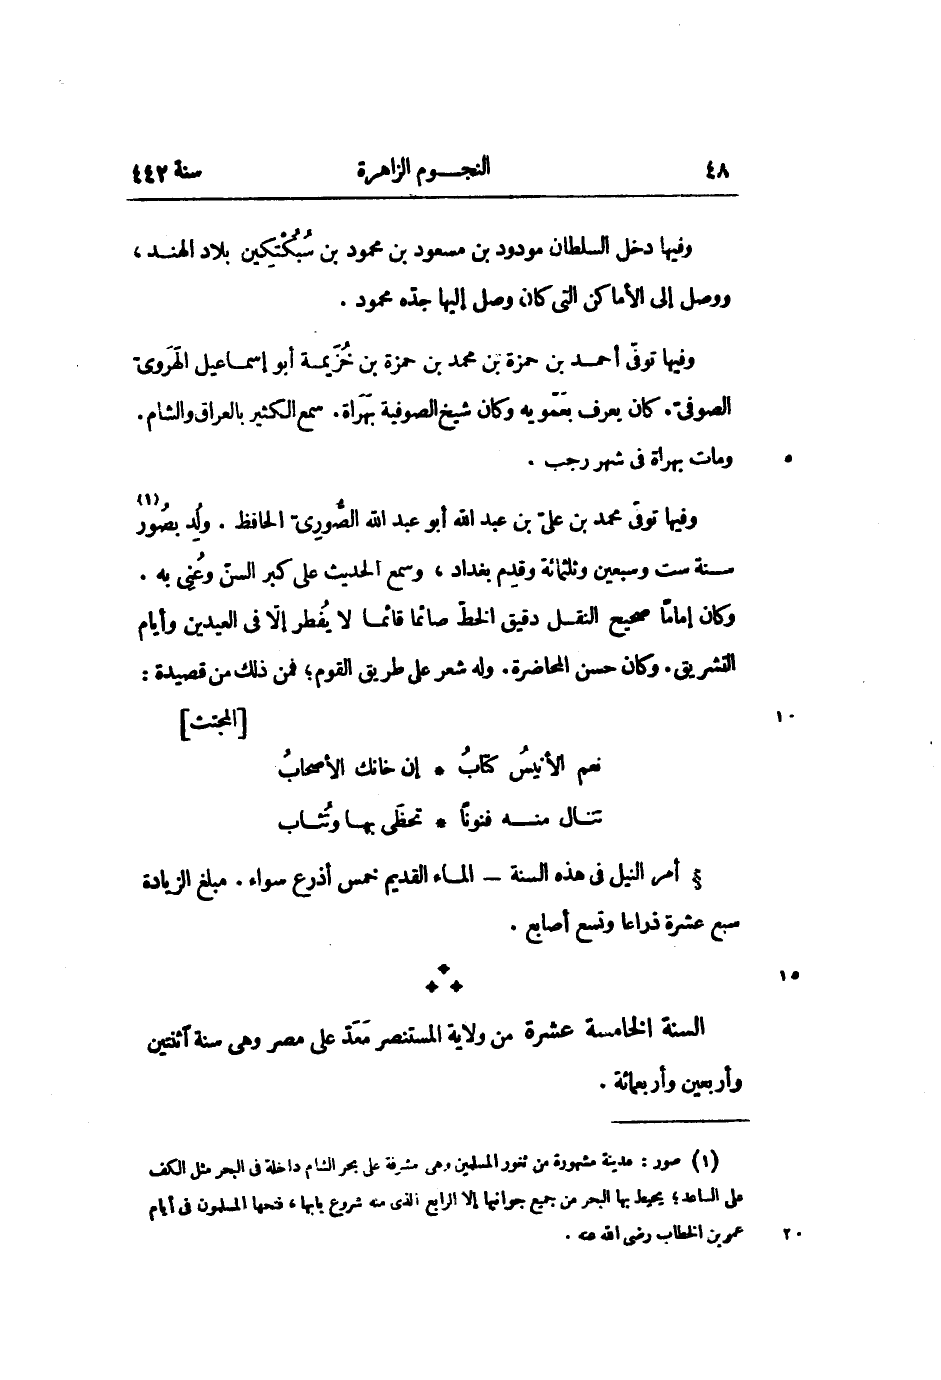 ٤٨ النجـــوم الزاهرة سنة ٤٤٢
وفيها دخل السلطان مودود بن مسعود بن محمود بن سُبُكْتِكِين بلاد الهنـد ،
ووصل إلى الأماكن التى كان وصل إليها جدّه محمود .
وفيها توفّى أحمـد بن حمزة بن محمد بن حمزة بن خُزَيمـة أبو إسمـاعيل الهَرَوىّ
الصوفىّ. كان يعرف بعَمّويه وكان شيخ الصوفية بهَرَاة. سمع الكثير بالعراق والشام.
٥ ومات بهراة فى شهر رجب .
وفيها توفّى محمد بن علىّ بن عبد الله أبو عبد الله الصُّورِىّ الحافظ . ولُد بصُور (١)
سـنة ست وسبعين وثلثمائة وقدِم بغداد ، وسمع الحديث على كبر السنّ وعُنِى به .
وكان إمامًا صحيح النقـل دقيق الخطّ صائما قائمـا لا يُفطر إلّا فى العيدين وأيام
التشريق. وكان حسن المحاضرة. وله شعر على طريق القوم؛ فمن ذلك من قصيدة :
١٠ [المجتث]
نعم الأنيسُ كتابُ * إن خانك الأصحابُ
تنـال منـــه فنونًا * تحظَى بهـا وتُثـاب
§ أمر النيل فى هذه السنة ــ المـاء القديم خمس أذرع سواء . مبلغ الزيادة
سبع عشرة ذراعا وتسع أصابع .
١٥
السنة الخامسة عشرة من ولاية المستنصر مَعَدّ على مصر وهى سنة آثنتين
وأربعين وأربعمائة .
(١) صور : مدينة مشهورة من ثغور المسلمين وهى مشرفة على بحر الشام داخلة فى البحر مثل الكف
على الساعد؛ يحيط بها البحر من جميع جوانبها إلا الرابع الذى منه شروع بابها ، فتحها المسلمون فى أيام
٢٠ عمر بن الخطاب رضى الله عنه .